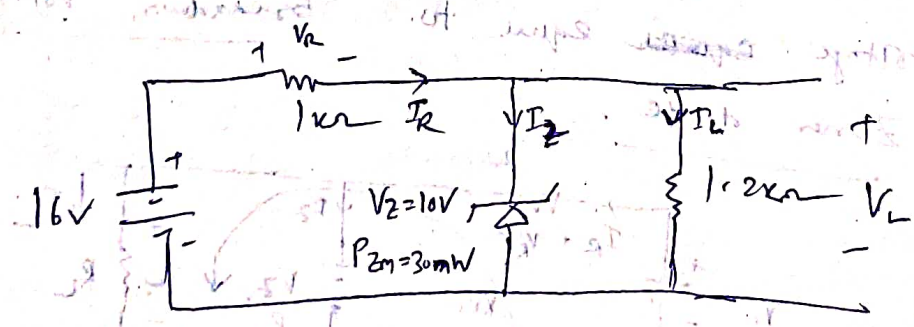 + VR -
1kΩ IR
IZ
IL
+
16V
+
-
VZ=10V
PZM=30mW
1.2kΩ
VL
-